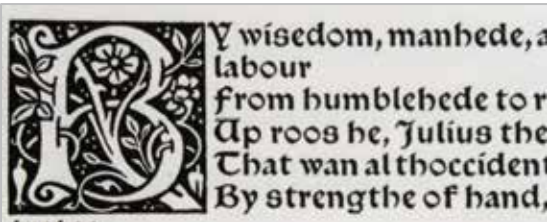 BY wisedom, manhede, a
labour
From humblehede to r
Up roos he, Julius the
That wan al thoccident
By strengthe of hand,